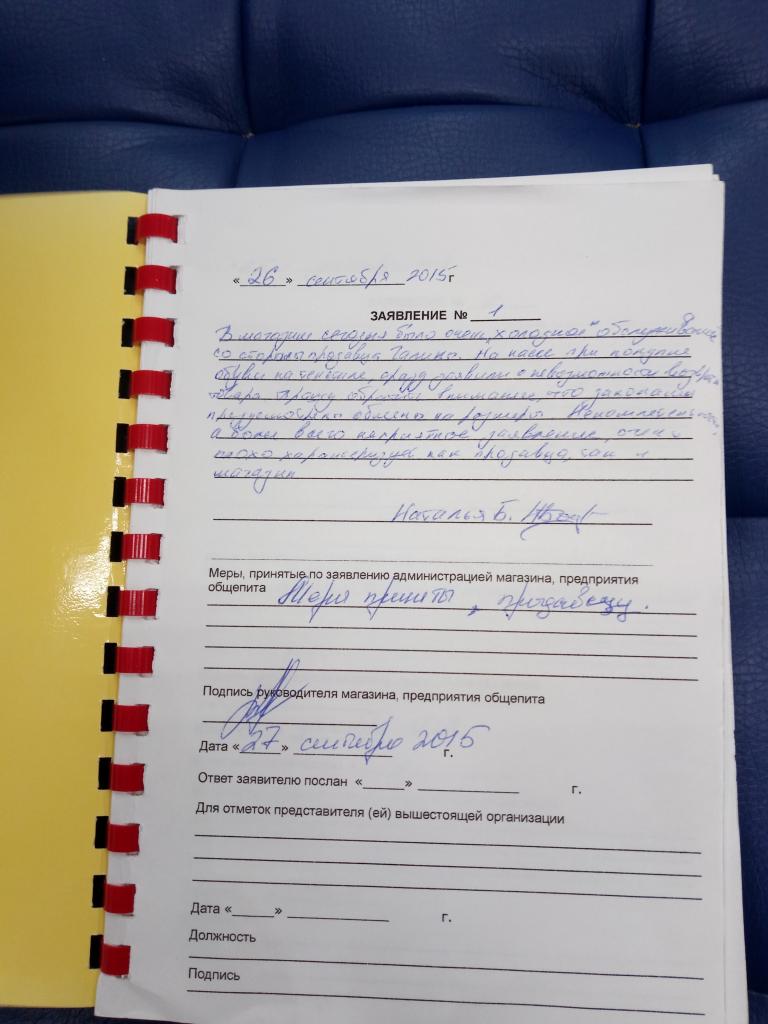 « 26 » сентября 2015 г
ЗАЯВЛЕНИЕ № 1
В магазине сегодня было очень „холодное" обслуживание
со стороны продавца Галина. На кассе при покупке
обуви на сразу заявили о невозможности
товара. Прошу обратить внимание, что законом
предусмотрено обмены на размеры.
а более всего неприятное заявление, очень
плохо характеризует как продавца, так и
магазин
Наталья Б.
Меры, принятые по заявлению администрацией магазина, предприятия
общепита Меры приняты, продавцу.
Подпись руководителя магазина, предприятия общепита
Дата « 27 » сентября 2015 г.
Ответ заявителю послан «_____» ____________ г.
Для отметок представителя (ей) вышестоящей организации
Дата «_____» ____________ г.
Должность
Подпись